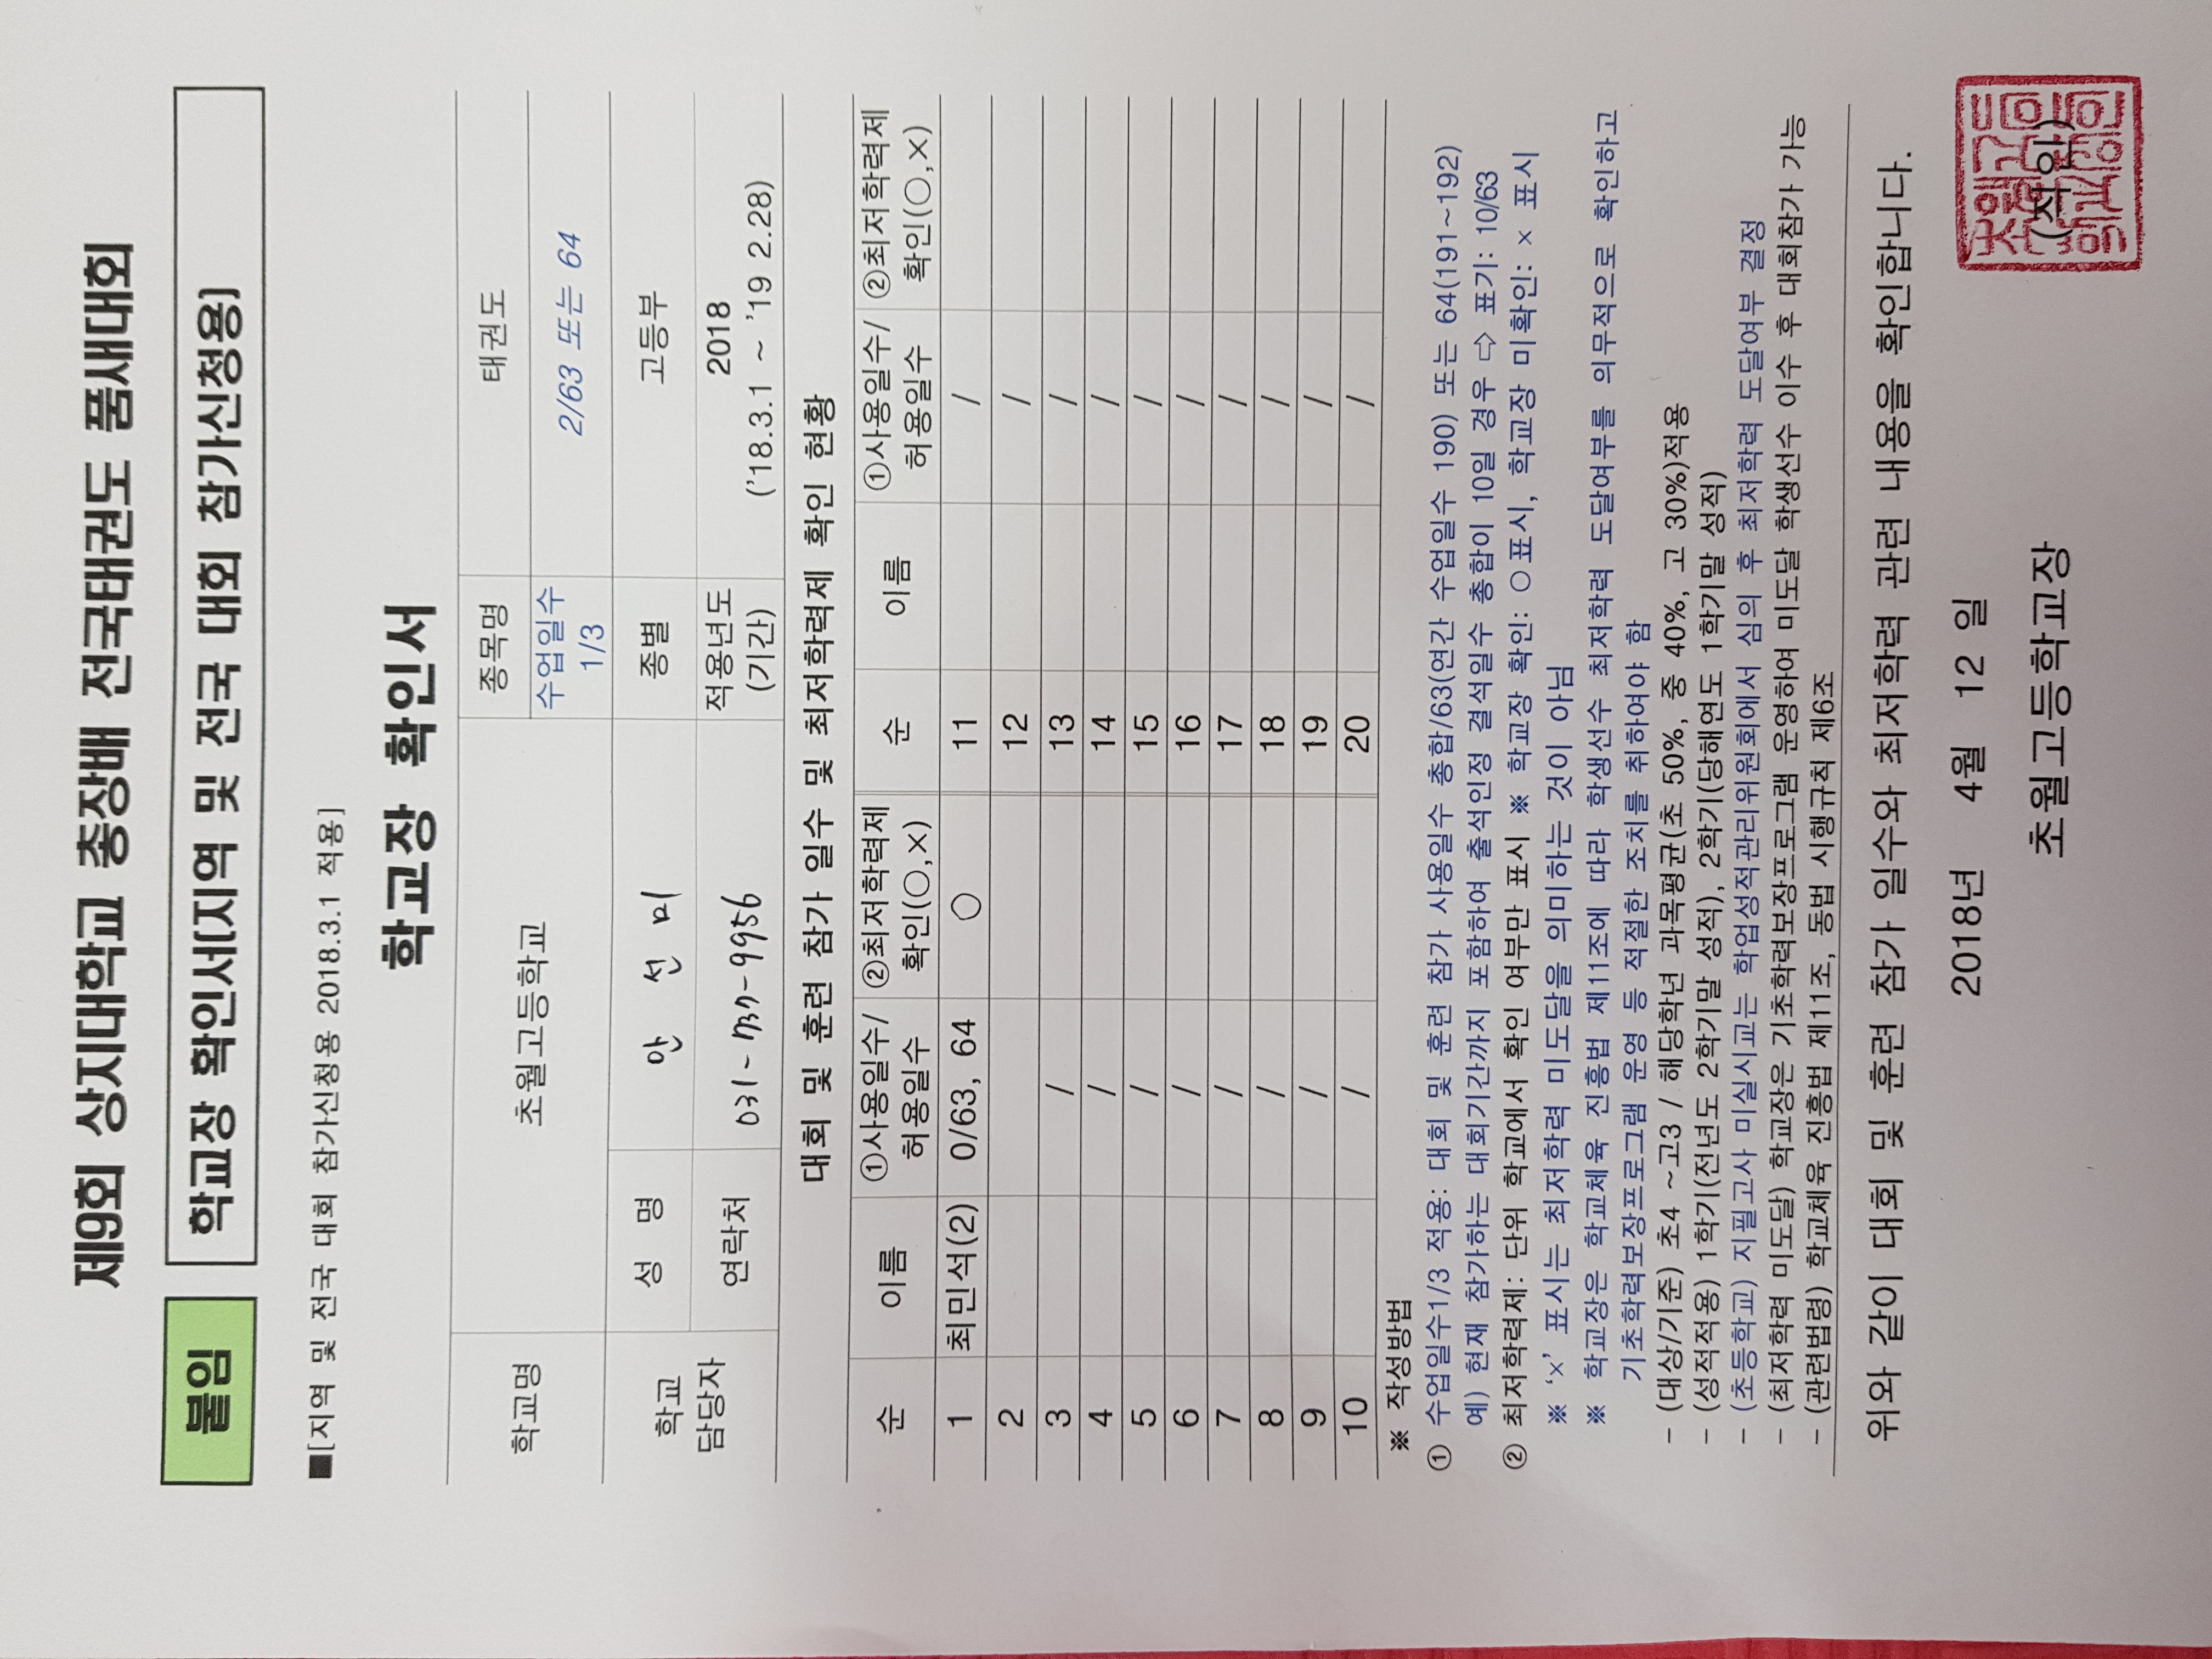 제9회 상지대학교 총장배 전국태권도 품새대회
붙임 학교장 확인서(지역 및 전국 대회 참가신청용)
■[지역 및 전국 대회 참가신청용 2018.3.1 적용]
학교장 확인서
학교명 초월고등학교 종목명 태권도
수업일수 1/3 2/63 또는 64
학교 담당자 성 명 안 선 미 종별 고등부
연락처 적용년도 (기간) 2018 ('18.3.1 ~ '19 2.28)
대회 및 훈련 참가 일수 및 최저학력제 확인 현황
순 이름 ①사용일수/허용일수 ②최저학력제 확인(○,×) 순 이름 ①사용일수/허용일수 ②최저학력제 확인(○,×)
1 최민석(2) 0/63, 64 ○ 11 /
2 12 /
3 / 13 /
4 / 14 /
5 / 15 /
6 / 16 /
7 / 17 /
8 / 18 /
9 / 19 /
10 / 20 /
※ 작성방법
① 수업일수1/3 적용: 대회 및 훈련 참가 사용일수 총합/63(연간 수업일수 190) 또는 64(191~192)
예) 현재 참가하는 대회기간까지 포함하여 출석인정 결석일수 총합이 10일 경우 ⇨ 표기: 10/63
② 최저학력제: 단위 학교에서 확인 여부만 표시 ※ 학교장 확인: ○표시, 학교장 미확인: × 표시
※ '×' 표시는 최저학력 미도달을 의미하는 것이 아님
※ 학교장은 학교체육 진흥법 제11조에 따라 학생선수 최저학력 도달여부를 의무적으로 확인하고
기초학력보장프로그램 운영 등 적절한 조치를 취하여야 함
- (대상/기준) 초4 ~고3 / 해당학년 과목평균(초 50%, 중 40%, 고 30%)적용
- (성적적용) 1학기(전년도 2학기말 성적), 2학기(당해연도 1학기말 성적)
- (초등학교) 지필고사 미실시교는 학업성적관리위원회에서 심의 후 최저학력 도달여부 결정
- (최저학력 미도달) 학교장은 기초학력보장프로그램 운영하여 미도달 학생선수 이수 후 대회참가 가능
- (관련법령) 학교체육 진흥법 제11조, 동법 시행규칙 제6조
위와 같이 대회 및 훈련 참가 일수와 최저학력 관련 내용을 확인합니다.
2018년 4월 12 일
초월고등학교장 (직인)